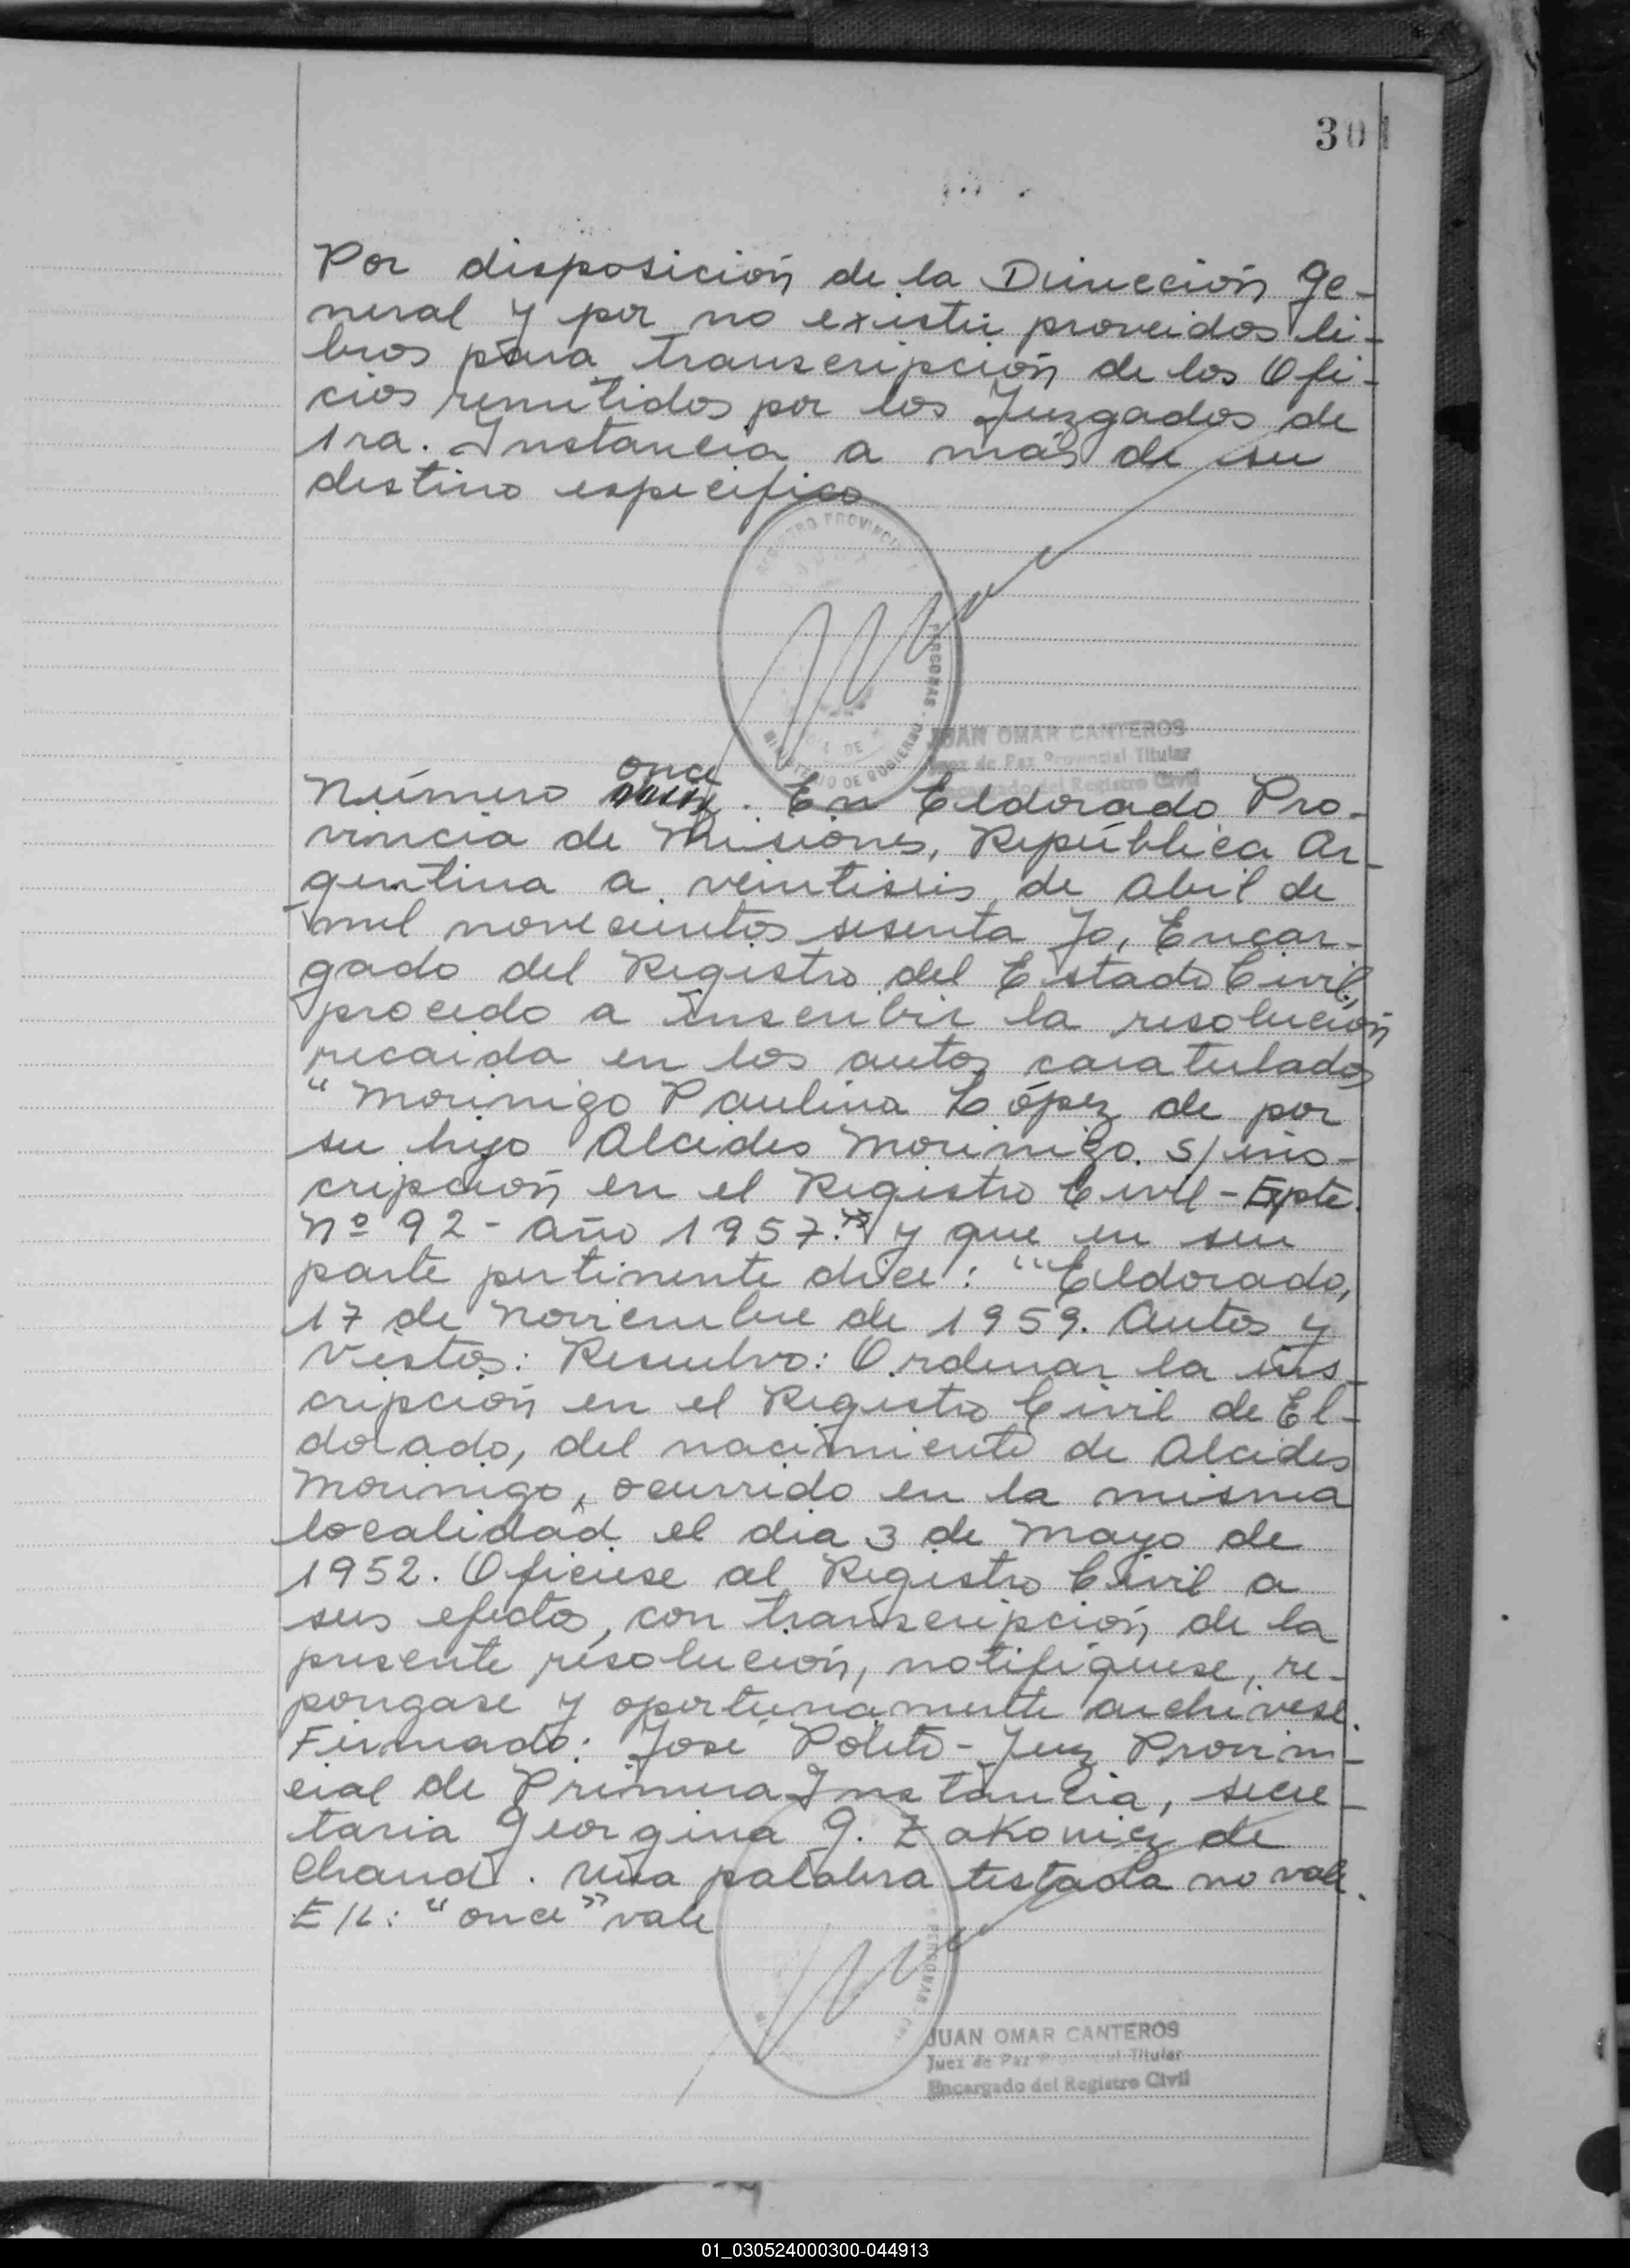 30
Por disposición de la Dirección Ge-
neral y por no existir proveidos li-
bros para transcripción de los Ofi-
cios remitidos por los Juzgados de
1ra. Instancia a más de su
destino especifico
REGISTRO PROVINCIAL
PERSONAS
MINISTERIO DE GOBIERNO
JUAN OMAR CANTEROS
Juez de Paz Provincial Titular
Encargado del Registro Civil
once
Número . En Eldorado Pro-
vincia de Misiones, República Ar-
gentina a veintiseis de Abril de
mil novecientos sesenta Yo, Encar-
gado del Registro del Estado Civil,
procedo a inscribir la resolución
recaida en los autos caratulados
"Morinigo Paulina López de por
su hijo Alcides Morinigo s/ins-
cripción en el Registro Civil - Expte.
Nº 92 - Año 1957." y que en su
parte pertinente dice: "Eldorado,
17 de Noviembre de 1959. Autos y
Vistos: Resuelvo: Ordenar la ins-
cripción en el Registro Civil de El-
dorado, del nacimiento de Alcides
Morinigo, ocurrido en la misma
localidad el dia 3 de Mayo de
1952. Oficiese al Registro Civil a
sus efectos, con transcripción de la
presente resolución, notifiquese, re-
pongase y oportunamente archivese.
Firmado: José Poleti - Juez Provin-
cial de Primera Instancia, secre-
taria Georgina G. Zakonicz de
Chaud. Una palabra testada no vale.
E/L: "once" vale
PERSONAS
JUAN OMAR CANTEROS
Juez de Paz Provincial Titular
Encargado del Registro Civil
01_030524000300-044913